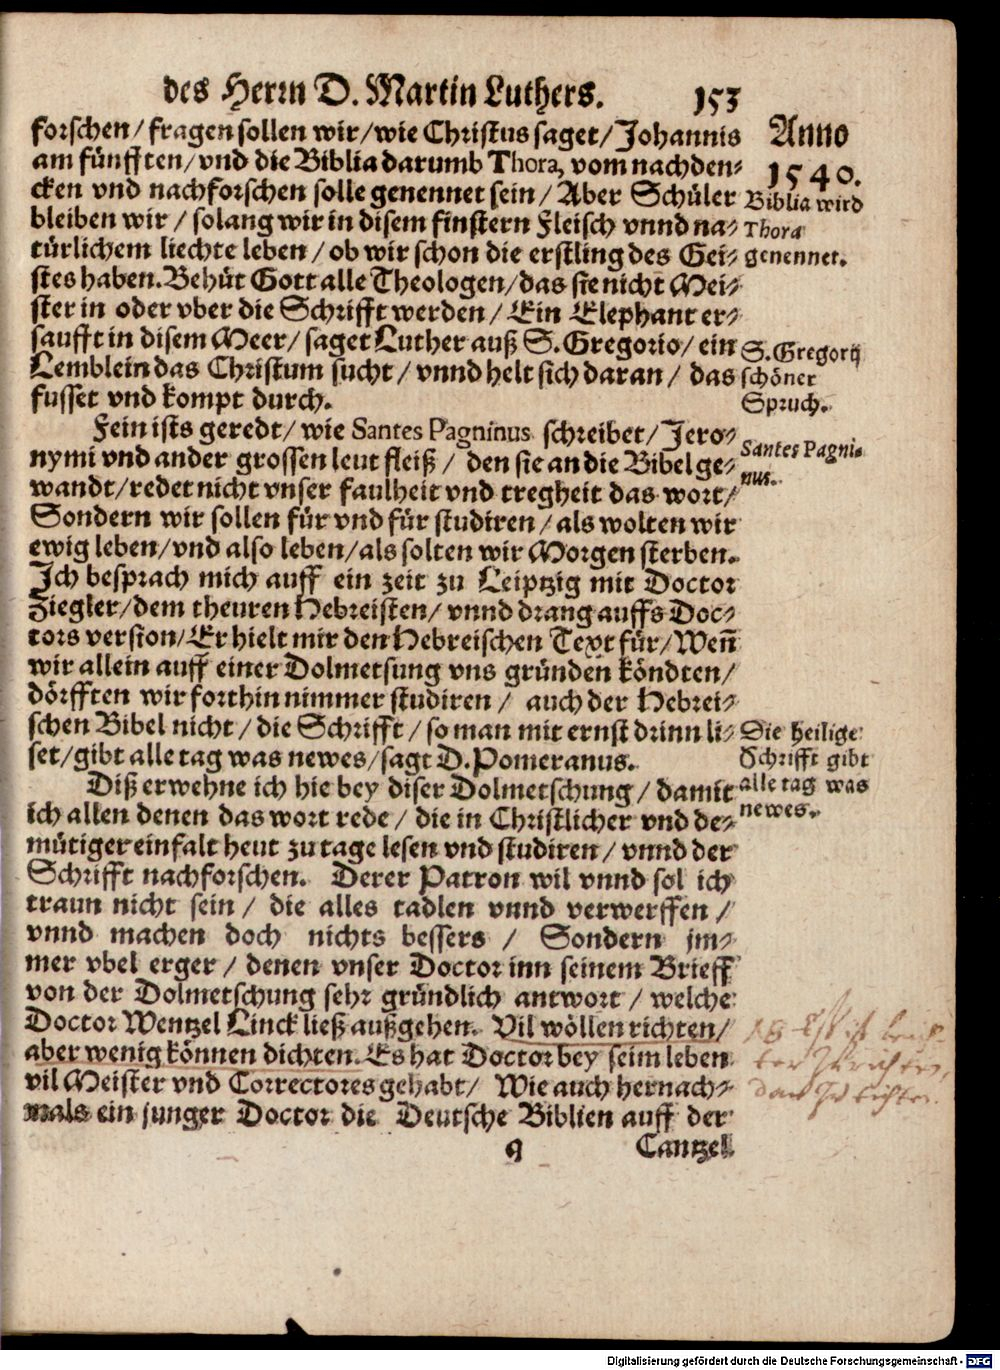 des Herrn D. Martin Luthers. 153
forschen/ fragen sollen wir/ wie Christus saget/ Johannis
am fünfften/ vnd die Biblia darumb Thora, vom nachden-
cken vnd nachforschen solle genennet sein/ Aber Schüler
bleiben wir/ solang wir in disem finstern Fleisch vnnd na-
türlichem liechte leben/ ob wir schon die erstling des Gei-
stes haben. Behüt Gott alle Theologen/ das sie nicht Mei-
ster in oder vber die Schrifft werden/ Ein Elephant er-
saufft in disem Meer/ saget Luther auß S. Gregorio/ ein
Lemblein das Christum sucht/ vnnd helt sich daran/ das
fusset vnd kompt durch.
Fein ists geredt/ wie Santes Pagninus schreibet/ Jero-
nymi vnd ander grossen leut fleiß/ den sie an die Bibel ge-
wandt/ redet nicht vnser faulheit vnd tregheit das wort/
Sondern wir sollen für vnd für studiren/ als wolten wir
ewig leben/ vnd also leben/ als solten wir Morgen sterben.
Ich besprach mich auff ein zeit zu Leiptzig mit Doctor
Ziegler/ dem theuren Hebreisten/ vnnd drang auffs Doc-
tors version/ Er hielt mir den Hebreischen Text für/ Weñ
wir allein auff einer Dolmetsung vns gründen köndten/
dörfften wir forthin nimmer studiren/ auch der Hebrei-
schen Bibel nicht/ die Schrifft/ so man mit ernst drinn li-
set/ gibt alle tag was newes/ sagt D. Pomeranus.
Diß erwehne ich hie bey diser Dolmetschung/ damit
ich allen denen das wort rede/ die in Christlicher vnd de-
mütiger einfalt heut zu tage lesen vnd studiren/ vnnd der
Schrifft nachforschen. Derer Patron wil vnnd sol ich
traun nicht sein/ die alles tadlen vnnd verwerffen/
vnnd machen doch nichts bessers/ Sondern jm-
mer vbel erger/ denen vnser Doctor inn seinem Brieff
von der Dolmetschung sehr gründlich antwort/ welche
Doctor Wentzel Linck ließ außgehen. Vil wöllen richten/
aber wenig können dichten. Es hat Doctor bey seim leben
vil Meister vnd Correctores gehabt/ Wie auch hernach-
mals ein junger Doctor die Deutsche Biblien auff der
q Cantzel
Anno
1540.
Biblia wird
Thora
genennet.
S. Gregorij
schöner
Spruch.
Santes Pagni-
nus.
Die heilige
Schrifft gibt
alle tag was
newes.
Digitalisierung gefördert durch die Deutsche Forschungsgemeinschaft - DFG